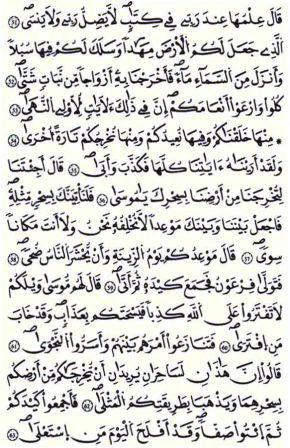 قَالَ عِلْمُهَا عِندَ رَبِّي فِي كِتَابٍ لَّا يَضِلُّ رَبِّي وَلَا يَنسَى ٥١
الَّذِي جَعَلَ لَكُمُ الْأَرْضَ مِهَادًا وَسَلَكَ لَكُمْ فِيهَا سُبُلًا
وَأَنزَلَ مِنَ السَّمَاءِ مَاءً فَأَخْرَجْنَا بِهِ أَزْوَاجًا مِّن نَّبَاتٍ شَتَّى ٥٢
كُلُوا وَارْعَوْا أَنْعَامَكُمْ إِنَّ فِي ذَٰلِكَ لَآيَاتٍ لِّأُولِي النُّهَى ٥٣
مِنْهَا خَلَقْنَاكُمْ وَفِيهَا نُعِيدُكُمْ وَمِنْهَا نُخْرِجُكُمْ تَارَةً أُخْرَى ٥٤
وَلَقَدْ أَرَيْنَاهُ آيَاتِنَا كُلَّهَا فَكَذَّبَ وَأَبَى ٥٥ قَالَ أَجِئْتَنَا
لِتُخْرِجَنَا مِنْ أَرْضِنَا بِسِحْرِكَ يَا مُوسَى ٥٦ فَلَنَأْتِيَنَّكَ بِسِحْرٍ مِّثْلِهِ
فَاجْعَلْ بَيْنَنَا وَبَيْنَكَ مَوْعِدًا لَّا نُخْلِفُهُ نَحْنُ وَلَا أَنتَ مَكَانًا
سِوًى ٥٧ قَالَ مَوْعِدُكُمْ يَوْمُ الزِّينَةِ وَأَن يُحْشَرَ النَّاسُ ضُحًى ٥٨
فَتَوَلَّى فِرْعَوْنُ فَجَمَعَ كَيْدَهُ ثُمَّ أَتَى ٥٩ قَالَ لَهُم مُّوسَى وَيْلَكُمْ
لَا تَفْتَرُوا عَلَى اللَّهِ كَذِبًا فَيُسْحِتَكُم بِعَذَابٍ وَقَدْ خَابَ
مَنِ افْتَرَى ٦٠ فَتَنَازَعُوا أَمْرَهُم بَيْنَهُمْ وَأَسَرُّوا النَّجْوَى ٦١
قَالُوا إِنْ هَٰذَانِ لَسَاحِرَانِ يُرِيدَانِ أَن يُخْرِجَاكُم مِّنْ أَرْضِكُم
بِسِحْرِهِمَا وَيَذْهَبَا بِطَرِيقَتِكُمُ الْمُثْلَى ٦٢ فَأَجْمِعُوا كَيْدَكُمْ
ثُمَّ ائْتُوا صَفًّا وَقَدْ أَفْلَحَ الْيَوْمَ مَنِ اسْتَعْلَى ٦٣